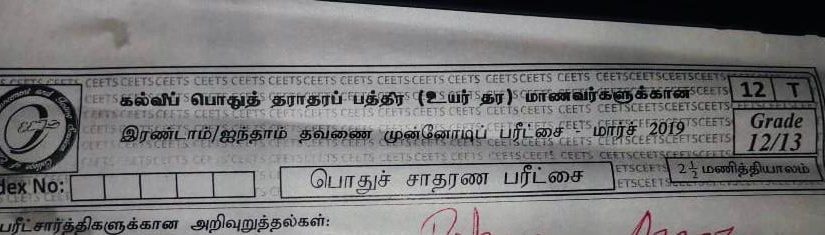 CEETS CEETS CEETS CEETS CEETS CEETS CEETS CEETS CEETS CEETS CEETS
கல்விப் பொதுத் தராதரப் பத்திர (உயர் தர) மாணவர்களுக்கான
12 T
இரண்டாம்/ஐந்தாம் தவணை முன்னோடிப் பரீட்சை - மார்ச் 2019
Grade
12/13
dex No:
பொதுச் சாதரண பரீட்சை
2 ½ மணித்தியாலம்
பரீட்சார்த்திகளுக்கான அறிவுறுத்தல்கள்: